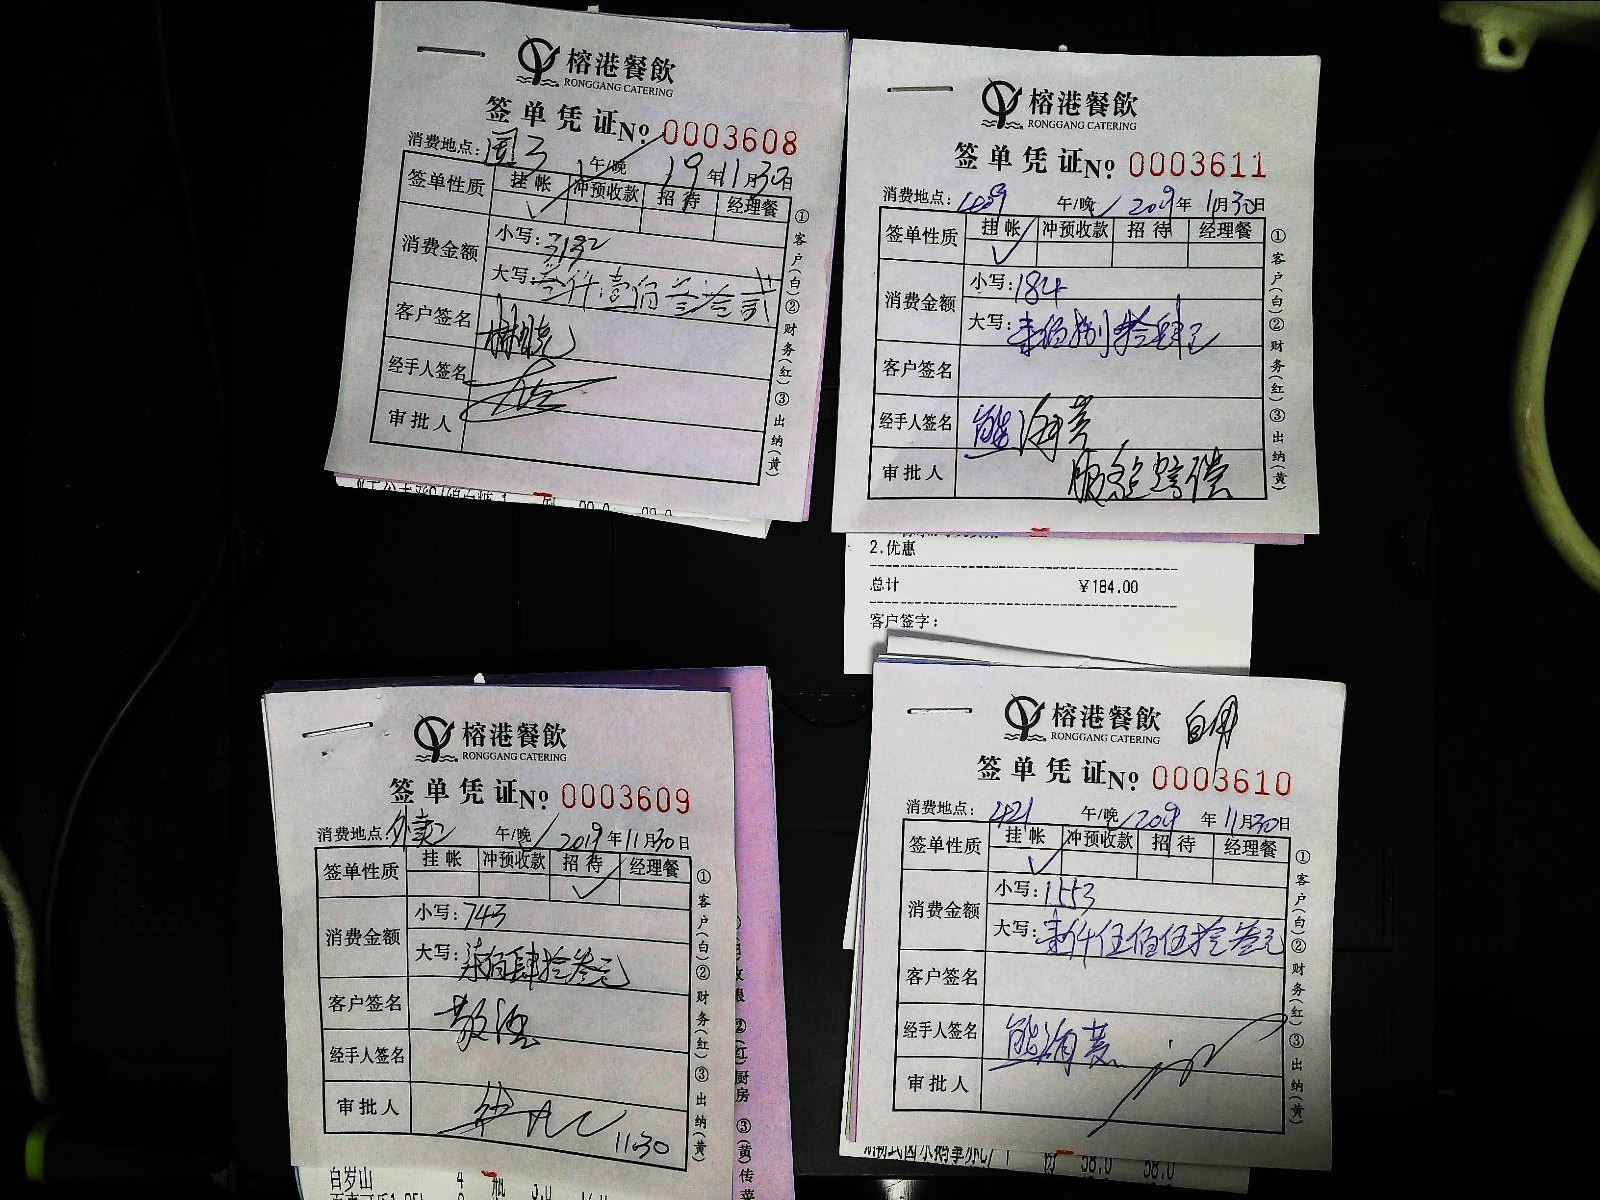 榕港餐飲
RONGGANG CATERING
签单凭证 № 0003608
消费地点: 午/晚 19年11月30日
签单性质 挂帐 冲预收款 招待 经理餐
消费金额
小写: 3132
大写: 叁仟壹佰叁拾贰
客户签名
经手人签名
审批人
①客户(白)②财务(红)③出纳(黄)
榕港餐飲
RONGGANG CATERING
签单凭证 № 0003611
消费地点: 午/晚 2019年11月30日
签单性质 挂帐 冲预收款 招待 经理餐
消费金额
小写: 184
大写: 壹佰捌拾肆元
客户签名
经手人签名 熊海菱
审批人 赔偿
①客户(白)②财务(红)③出纳(黄)
2.优惠
总计 ¥184.00
客户签字:
榕港餐飲
RONGGANG CATERING
签单凭证 № 0003609
消费地点: 外卖2 午/晚 2019年11月30日
签单性质 挂帐 冲预收款 招待 经理餐
消费金额
小写: 743
大写: 柒佰肆拾叁元
客户签名
经手人签名
审批人 11.30
①客户(白)②财务(红)③出纳(黄)
白岁山 4 瓶 3.0
榕港餐飲 自用
RONGGANG CATERING
签单凭证 № 0003610
消费地点: 421 午/晚 2019年11月30日
签单性质 挂帐 冲预收款 招待 经理餐
消费金额
小写: 1553
大写: 壹仟伍佰伍拾叁元
客户签名
经手人签名 熊海菱
审批人
①客户(白)②财务(红)③出纳(黄)
58.0 58.0